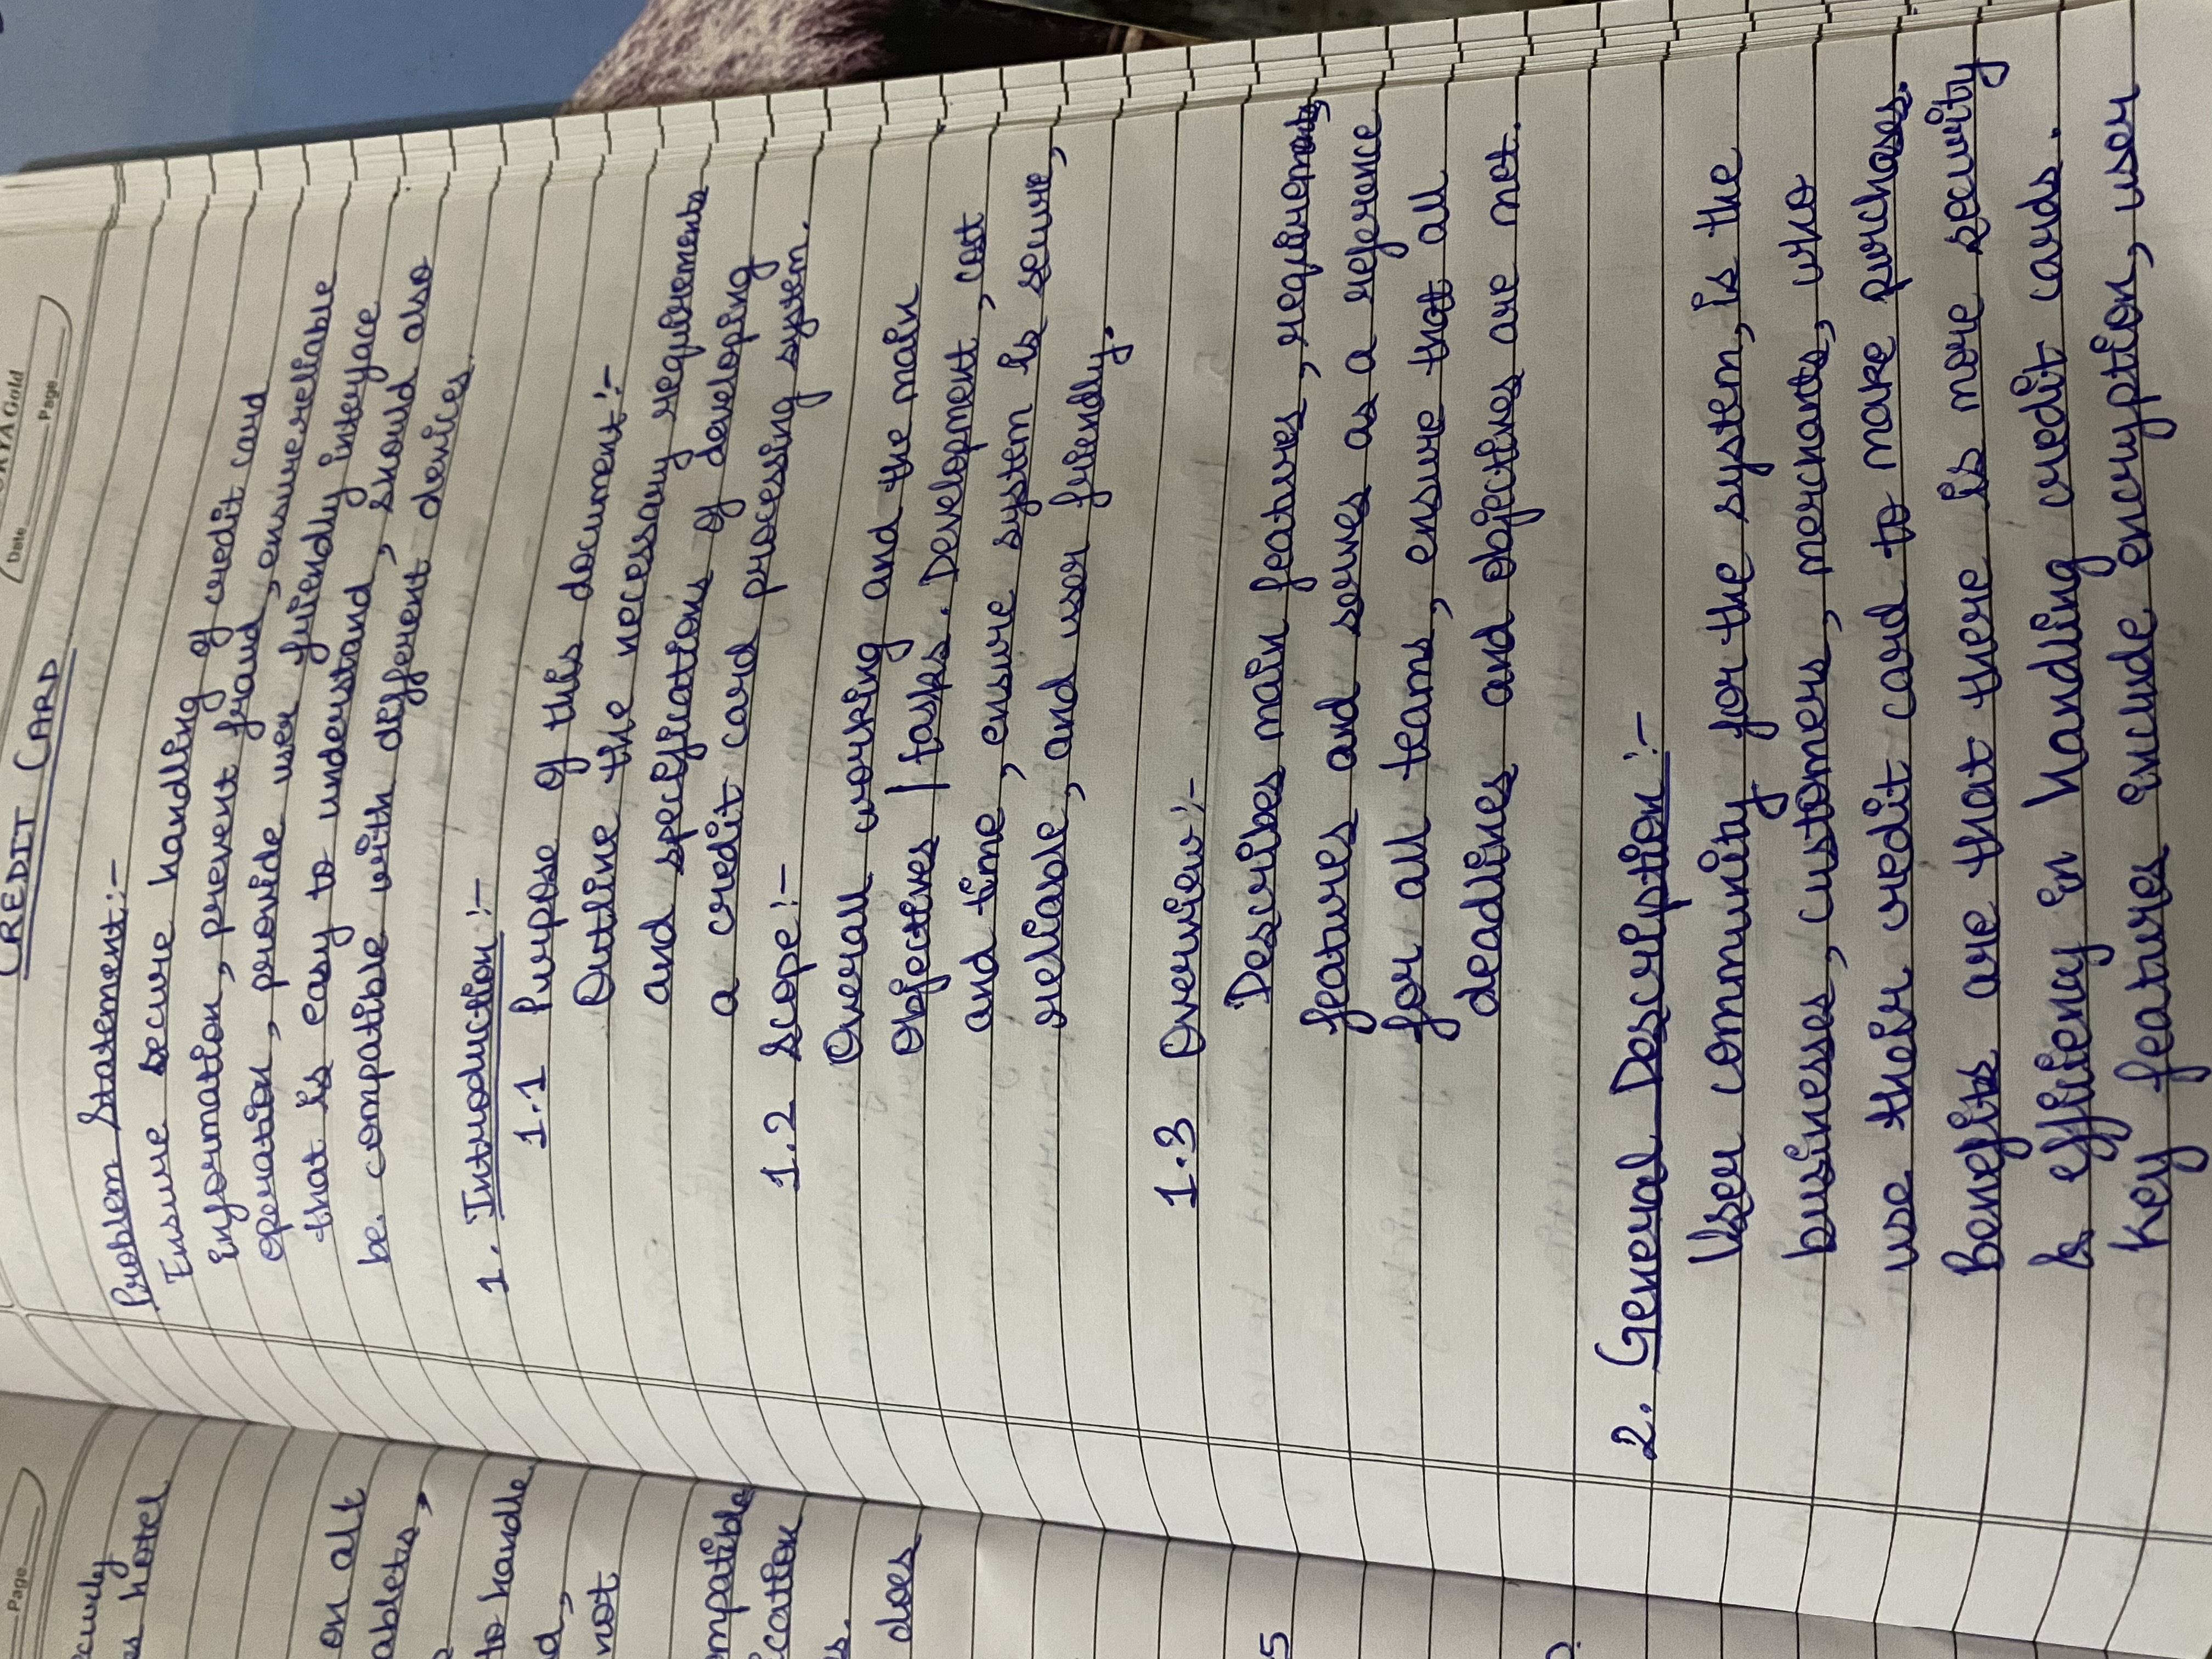 Page
ecurely
es hotel
on all
ablets,
to handle
d,
not
ompatible
ication
s.
does
5
RYA Gold
Date Page
CREDIT CARD
Problem Statement:-
Ensure secure handling of credit card
information, prevent fraud, ensure reliable
operation, provide user friendly interface
that is easy to understand, should also
be compatible with different devices.
1. Introduction:-
1.1 Purpose of this document:-
Outline the necessary requirements
and specifications of developing
a credit card processing system.
1.2 Scope:-
Overall working and the main
Objectives / tasks. Development, cost
and time, ensure system is secure,
reliable, and user friendly.
1.3 Overview:-
Describes main features, requirements,
features and serves as a reference
for all teams, ensure that all
deadlines and objectives are met.
2. General Description:-
User community for the system, is the
businesses, customers, merchants, who
use their credit card to make purchases.
Benefits are that there is more security
& efficiency in handling credit cards.
Key features include encryption, user